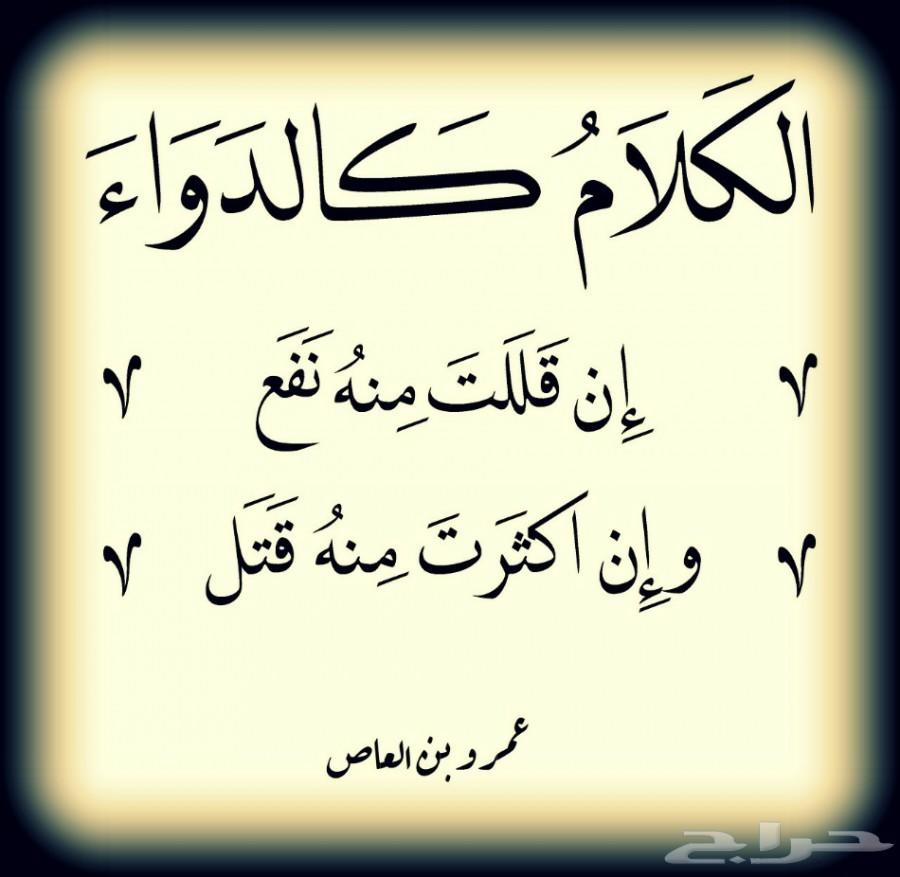 الكَلَامُ كَالدَوَاءَ
إِن قَلَلَتَ مِنهُ نَفَع
وإِن اكثَرتَ مِنهُ قَتَل
عمرو بن العاص
حراج